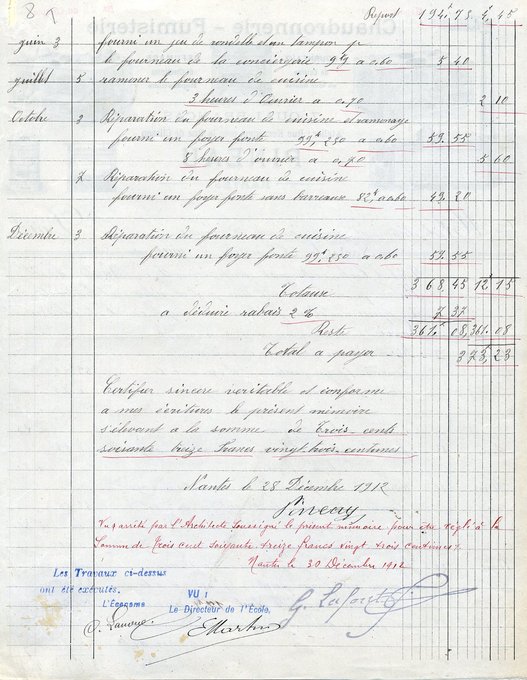 87
Report 194.73 4.45
juin 3 fourni un jeu de rondelle et un tampon p.
le fourneau de la conciergerie 9k9 a 0.60 5 40
juillet 5 ramoner le fourneau de cuisine
3 heures d'ouvrier a 0.70 2 10
Octobre 3 Réparation du fourneau de cuisine et ramonage
fourni un foyer fonte 99k,250 a 0.60 59.55
8 heures d'ouvrier a 0.70 5 60
7 Réparation du fourneau de cuisine
fourni un foyer fonte sans barreaux 82k a 0.60 49.20
Décembre 3 Réparation du fourneau de cuisine
fourni un foyer fonte 99k,250 a 0.60 59.55
Totaux 368.45 12.15
a déduire rabais 2 % 7 37
Reste 361.08 361.08
Total a payer 373,23
Certifier sincere veritable et conforme
a mes écritures le présent mémoire
s'élevant a la somme de Trois-cents
soixante treize francs vingt-trois-centimes
Nantes le 28 Décembre 1912
Vu arrêté par l'Architecte soussigné le présent mémoire pour être réglé à la
Somme de Trois cent soixante treize francs vingt trois centimes
Nantes le 30 Décembre 1912
Les Travaux ci-dessus
ont été exécutés.
L'Économe
VU :
Le Directeur de l'École,
E Martin